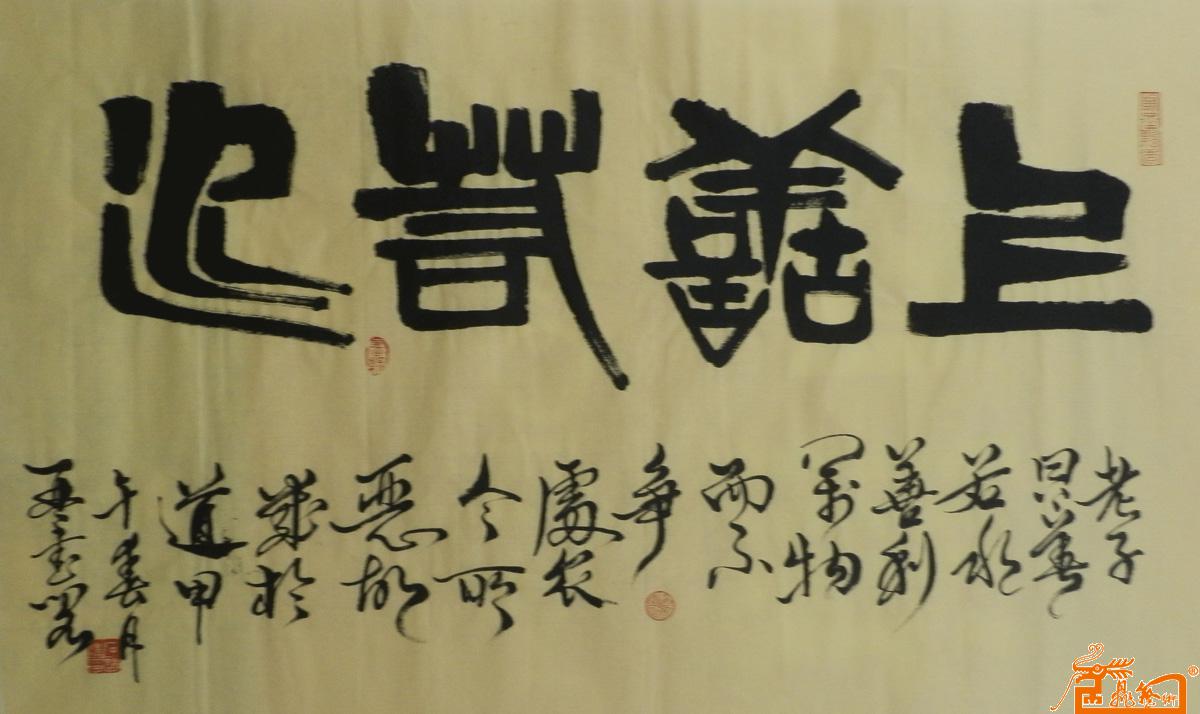 上善若水
老子
曰上善
若水
善利
万物
而不
争
處衆
人所
恶故
幾於
道甲
午春月